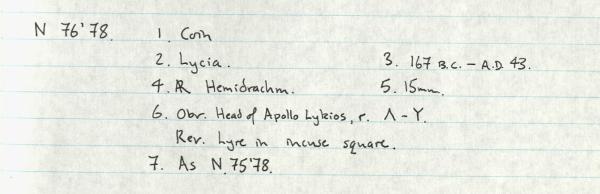 N 76'78. 1. Coin
2. Lycia. 3. 167 B.C. – A.D. 43.
4. AR Hemidrachm. 5. 15mm.
6. Obv. Head of Apollo Lykios, r. Λ – Υ.
Rev. Lyre in incuse square.
7. As N 75'78.